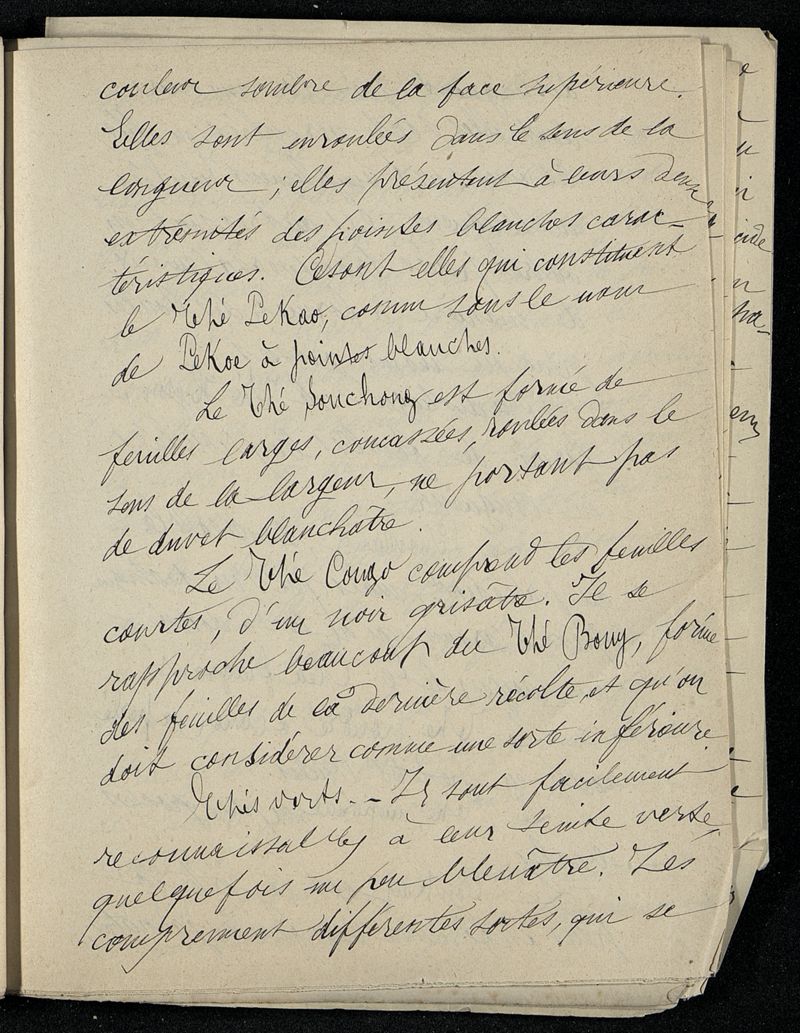 couleur sombre de la face supérieure.
Elles sont enroulées dans le sens de la
longueur ; elles présentent à leurs deux
extrémités des pointes blanches carac-
téristiques. Ce sont elles qui constituent
le Thé Pekao, connu sous le nom
de Pekoe à pointes blanches.
Le Thé Souchong est formé de
feuilles larges, concassées, roulées dans le
sens de la largeur, ne portant pas
de duvet blanchâtre.
Le Thé Congo comprend les feuilles
courtes, d'un noir grisâtre. Il se
rapproche beaucoup du Thé Bouy, formé
des feuilles de la dernière récolte et qu'on
doit considérer comme une sorte inférieure
Thés verts. - Ils sont facilement
reconnaissables à leur teinte verte,
quelquefois un peu bleuâtre. Les
comprennent différentes sortes, qui se